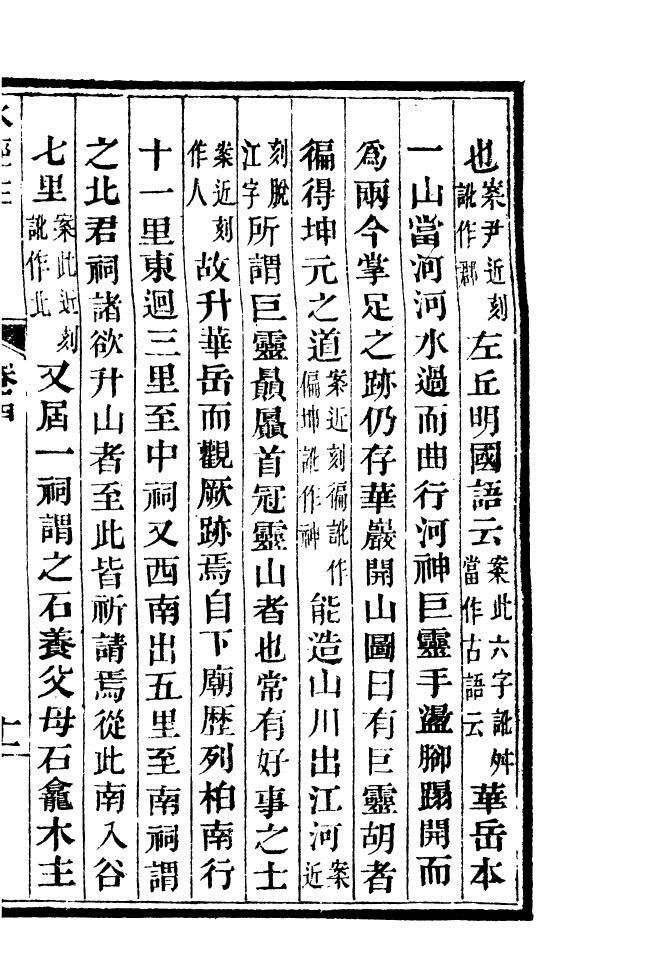 也案尹近刻訛作郡左丘明國語云案此六字訛舛當作古語云華岳本
一山當河河水過而曲行河神巨靈手盪腳蹋開而
爲兩今掌足之跡仍存華巖開山圖曰有巨靈胡者
徧得坤元之道案近刻徧訛作偏坤訛作神能造山川出江河案近
刻脫江字所謂巨靈贔屭首冠靈山者也常有好事之士
案近刻作人故升華岳而觀厥跡焉自下廟歷列柏南行
十一里東迴三里至中祠又西南出五里至南祠謂
之北君祠諸欲升山者至此皆祈請焉從此南入谷
七里案此近刻訛作北又屆一祠謂之石養父母石龕木主
水經注 卷四 十二